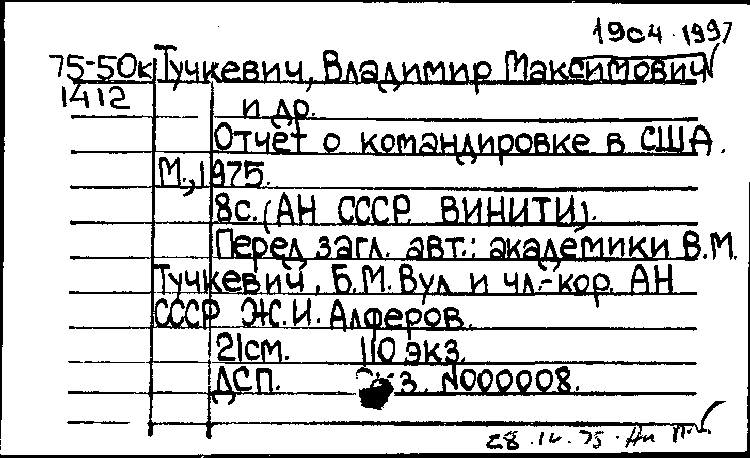 19c4.1997
75-50к Тучкевич, Владимир Максимович
1412 и др.
Отчёт о командировке в США.
М., 1975.
8с. (АН СССР. ВИНИТИ).
Перед загл. авт.: академики В.М.
Тучкевич, Б.М. Вул и чл.-кор. АН
СССР Ж.И. Алферов.
21см. 110 экз.
ДСП. Экз. N000008.